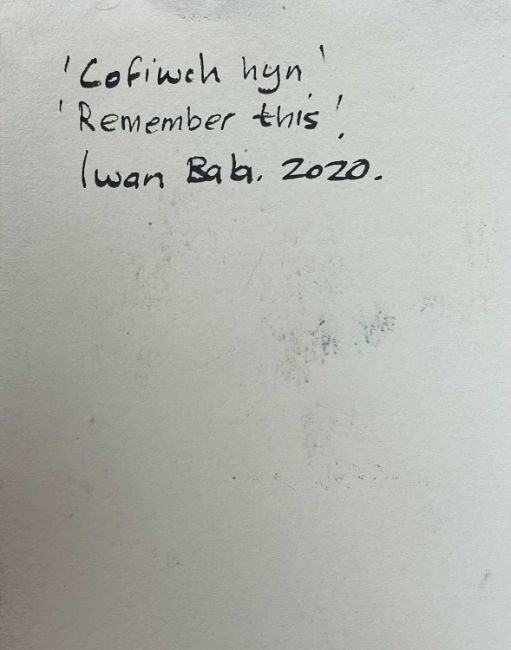 'Cofiwch hyn'
'Remember this'.
Iwan Bala. 2020.